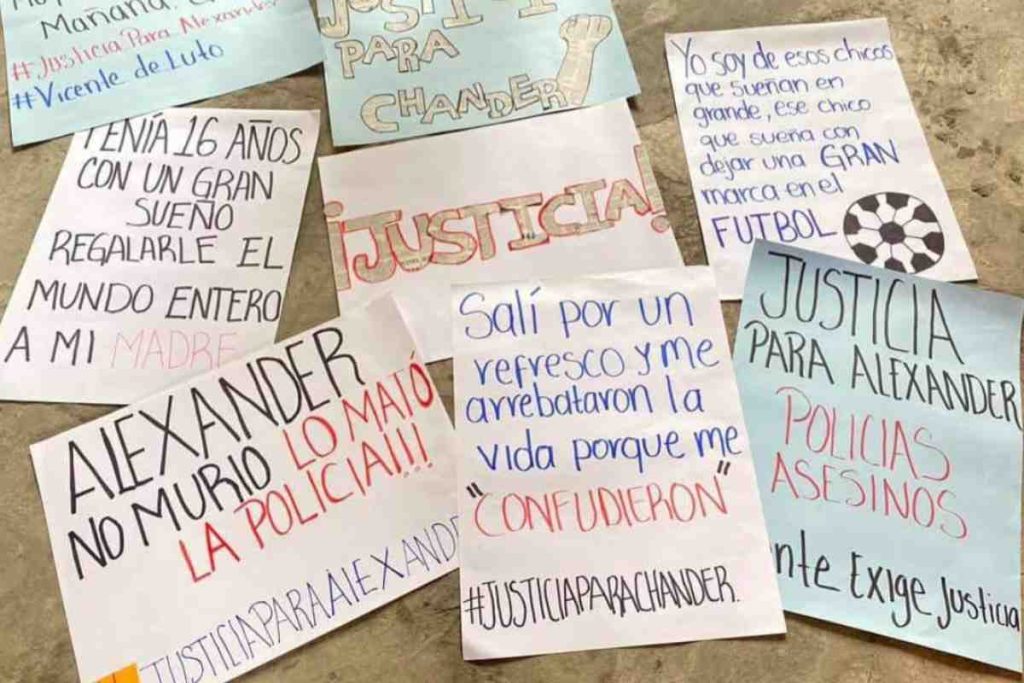 Mañana.
#Justicia Para Alexander
#Vicente de Luto
JUSTICIA
PARA
CHANDER
Yo soy de esos chicos
que sueñan en
grande, ese chico
que sueña con
dejar una GRAN
marca en el
FUTBOL
TENÍA 16 AÑOS
CON UN GRAN
SUEÑO
REGALARLE EL
MUNDO ENTERO
A MI MADRE
¡JUSTICIA!
ALEXANDER
NO MURIO LO MATÓ
LA POLICIA!!!
JUSTICIAPARAALEXANDE
Salí por un
refresco y me
arrebataron la
vida porque me
"CONFUDIERON"
#JUSTICIAPARACHANDER.
JUSTICIA
PARA ALEXANDER
POLICIAS
ASESINOS
nte Exige Justicia